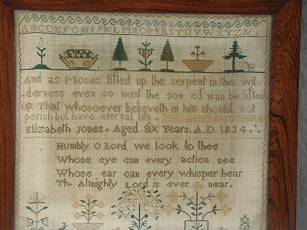 ABCDEFGHIJKLMNOPQRSTUVWXYZ&
And as Moses lifted up the serpent in the wil
derness even so must the son of man be lifted
up That whosoever believeth in him should not
perish but have eternal life
Elizabeth Jones . Aged Six Years. A.D. 1834
Humbly O Lord we look to thee
Whose eye can every action see
Whose ear can every whisper hear
Th Almighly Lord is ever near.